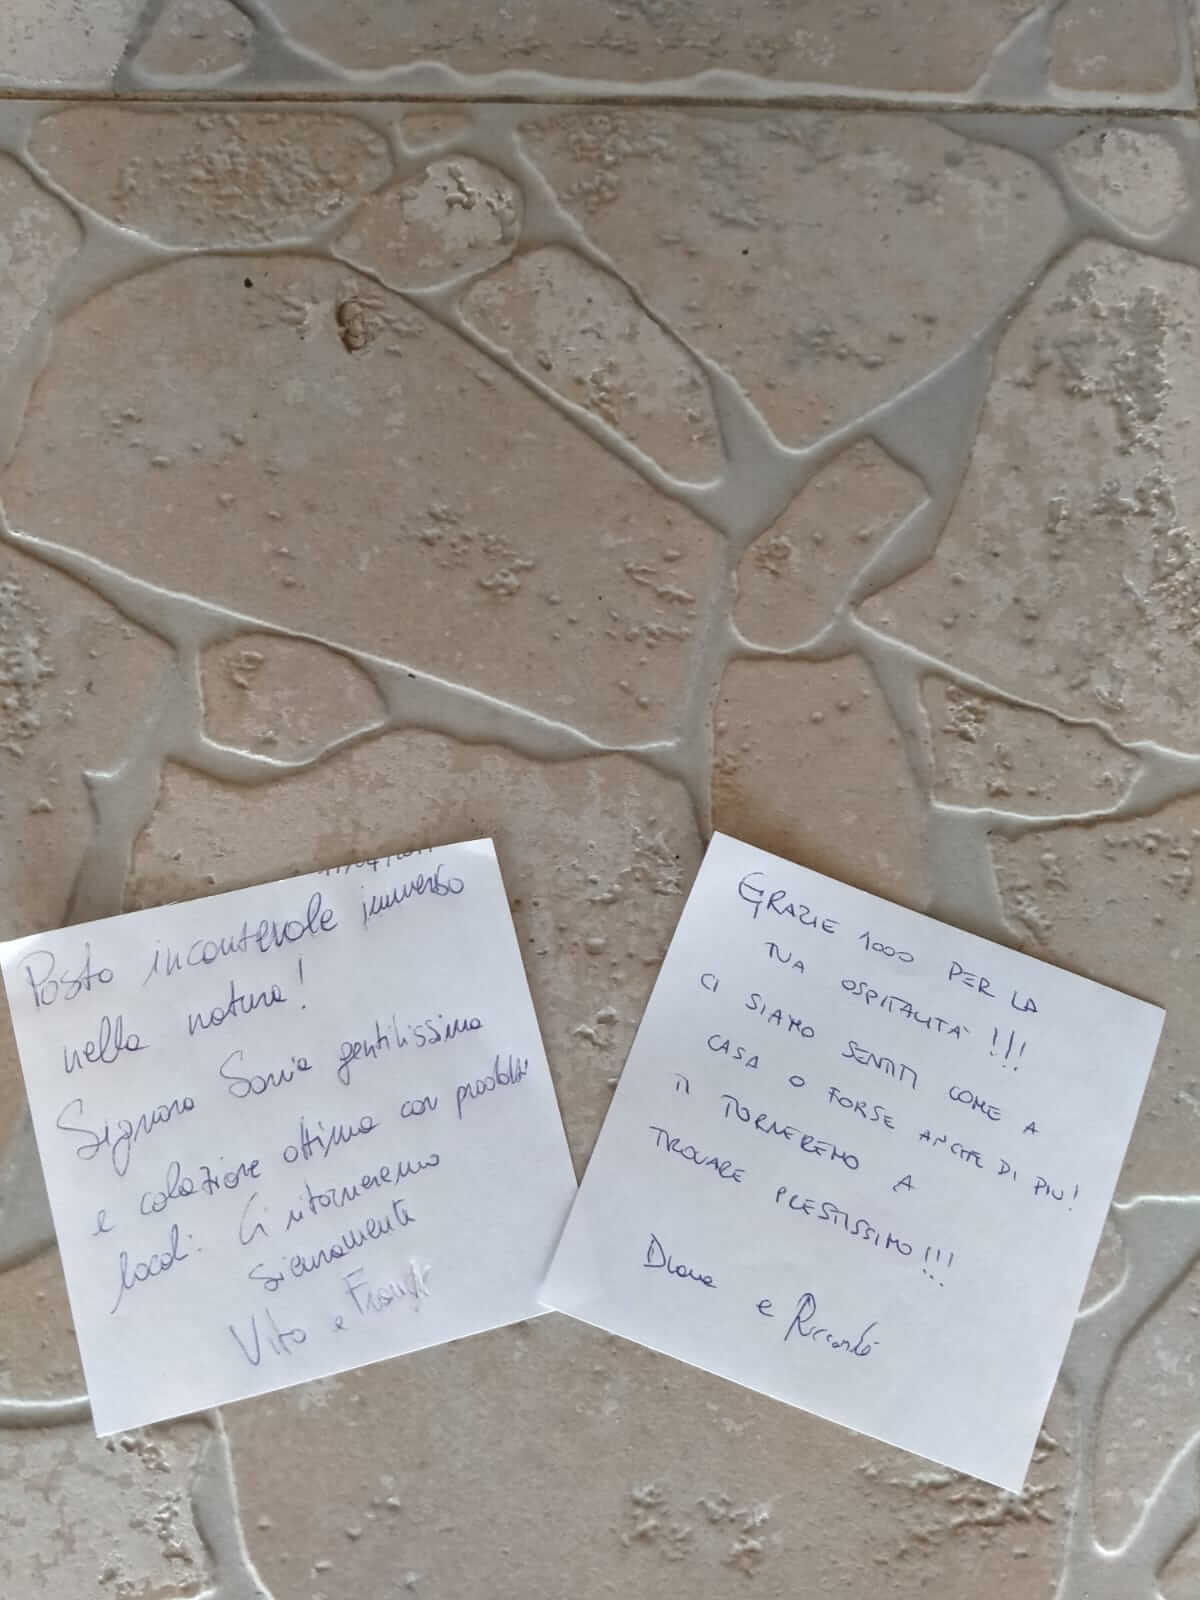 Posto incantevole immerso
nella natura!
Signora Sonia gentilissima
e colazione ottima con prodotti
locali. Ci ritorneremo
sicuramente
Vito e
GRAZIE 1000 PER LA
TUA OSPITALITA' !!!
CI SIAMO SENTITI COME A
CASA O FORSE ANCHE DI PIU'!
TI TORNEREMO A
TROVARE PRESTISSIMO!!!
Diana e Riccardo